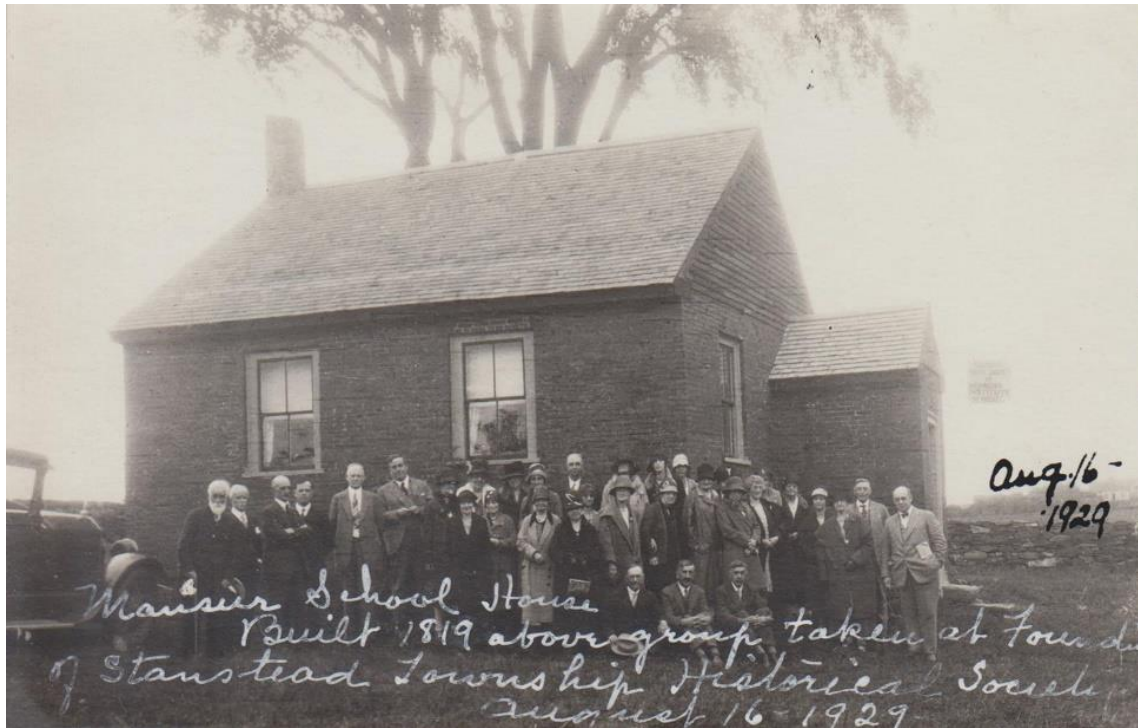 Aug. 16-
1929
Mansur School House
Built 1819 above group taken at Found
of Stanstead Township Historical Society
August 16 - 1929